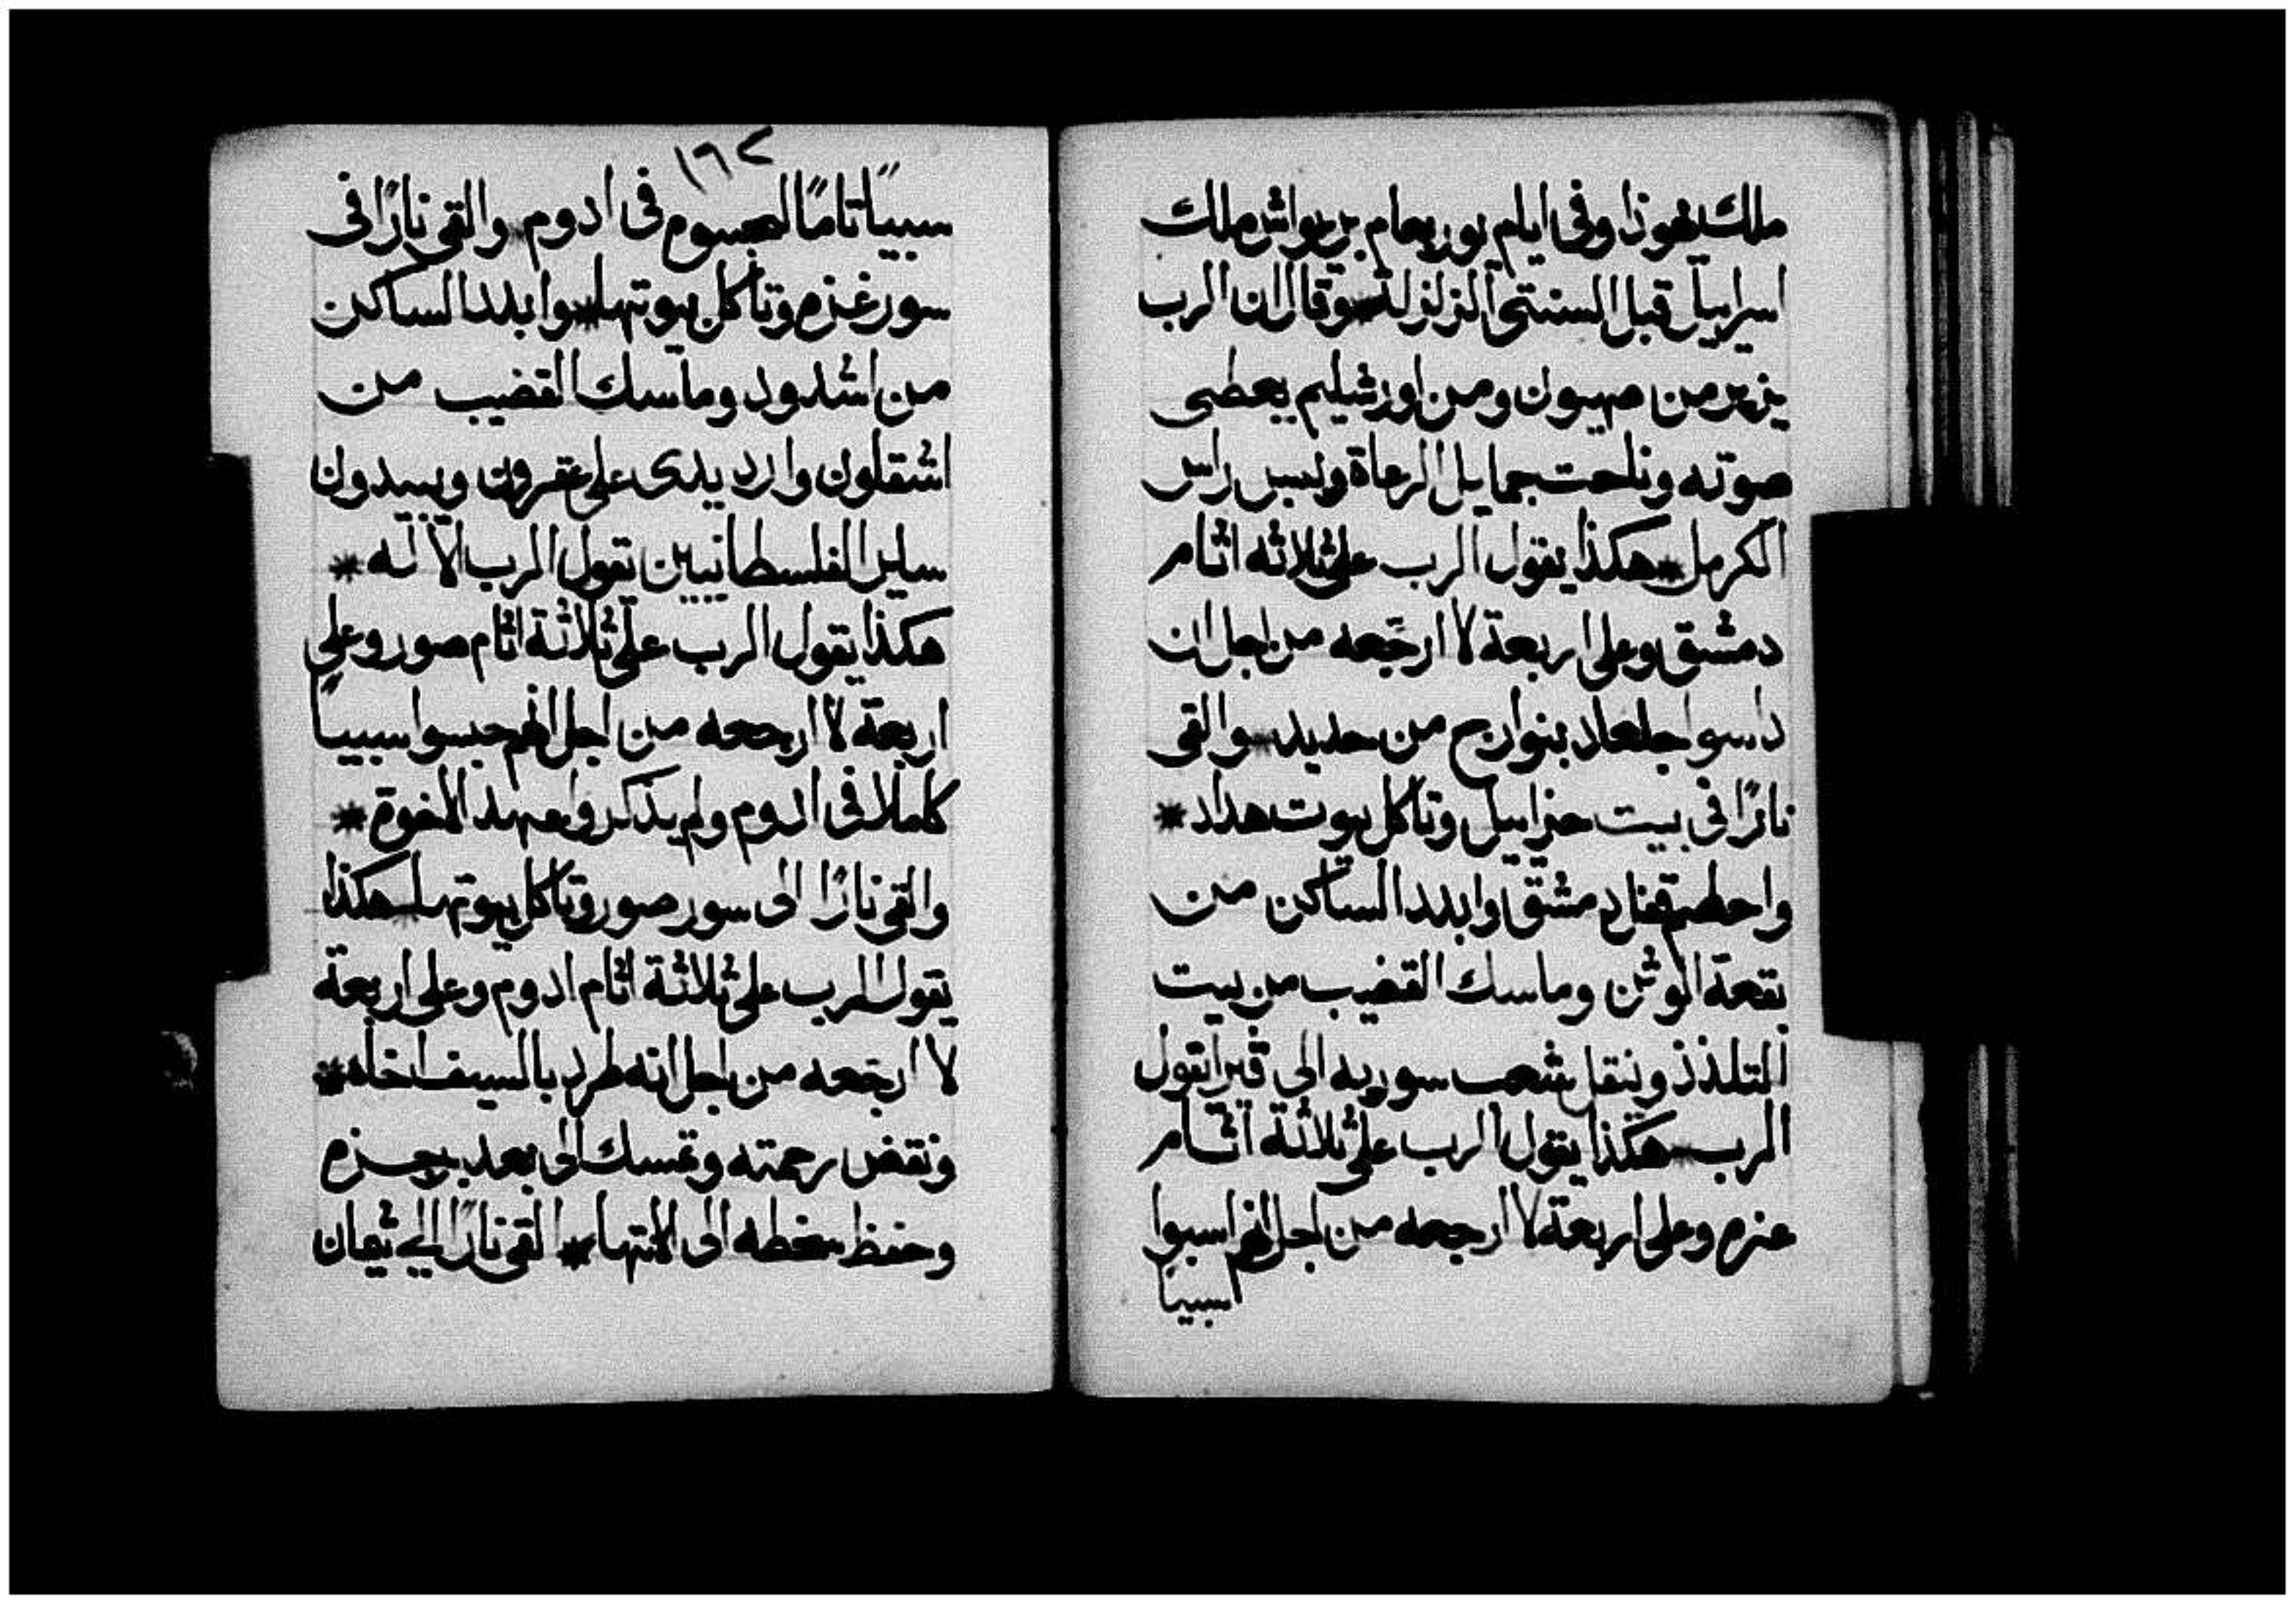 ملك يهوذا وفى ايام يوربعام بن يواش ملك
اسراييل قبل السنتى الزلزلة * وقال ان الرب
يزير من صهيون ومن اورشليم يعطى
صوته وناحت جمايل الرعاة ويبس راس
الكرمل * هكذا يقول الرب على ثلاثه اثام
دمشق وعلى اربعة لا ارجعه من اجل ان
داسوا جلعاد بنوارج من حديد * والقى
نارًا فى بيت حزاييل وتاكل بيوت هداد *
واحطم قفار دمشق وابدد الساكن من
بقعة الوثن وماسك القضيب من بيت
التلذذ وينقل شعب سوريه الى قير يقول
الرب * هكذا يقول الرب على ثلاثة اثام
عزه وعلى اربعة لا ارجعه من اجل انهم اسبوا
سبيًا
١٦٢
سبيًا تامًا فى ادوم * والقى نارًا فى
سور غزه وتاكل بيوتها * وابدد الساكن
من اشدود وماسك القضيب من
اشقلون وارد يدى على عقرون ويبيدون
ساير الفلسطانيين يقول الرب الاله *
هكذا يقول الرب على ثلاثة اثام صور وعلى
اربعة لا ارجعه من اجل انهم حبسوا سبيًا
كاملا فى ادوم ولم يذكروا عهد الاخوة *
والقى نارًا الى سور صور وتاكل بيوتها * هكذا
يقول الرب على ثلاثة اثام ادوم وعلى اربعة
لا ارجعه من اجل انه طرد بالسيف اخاه *
ونقض رحمته وتمسك الى بعد برجزه
وحفظ سخطه الى الانتها * القى نارًا الى ثيمان